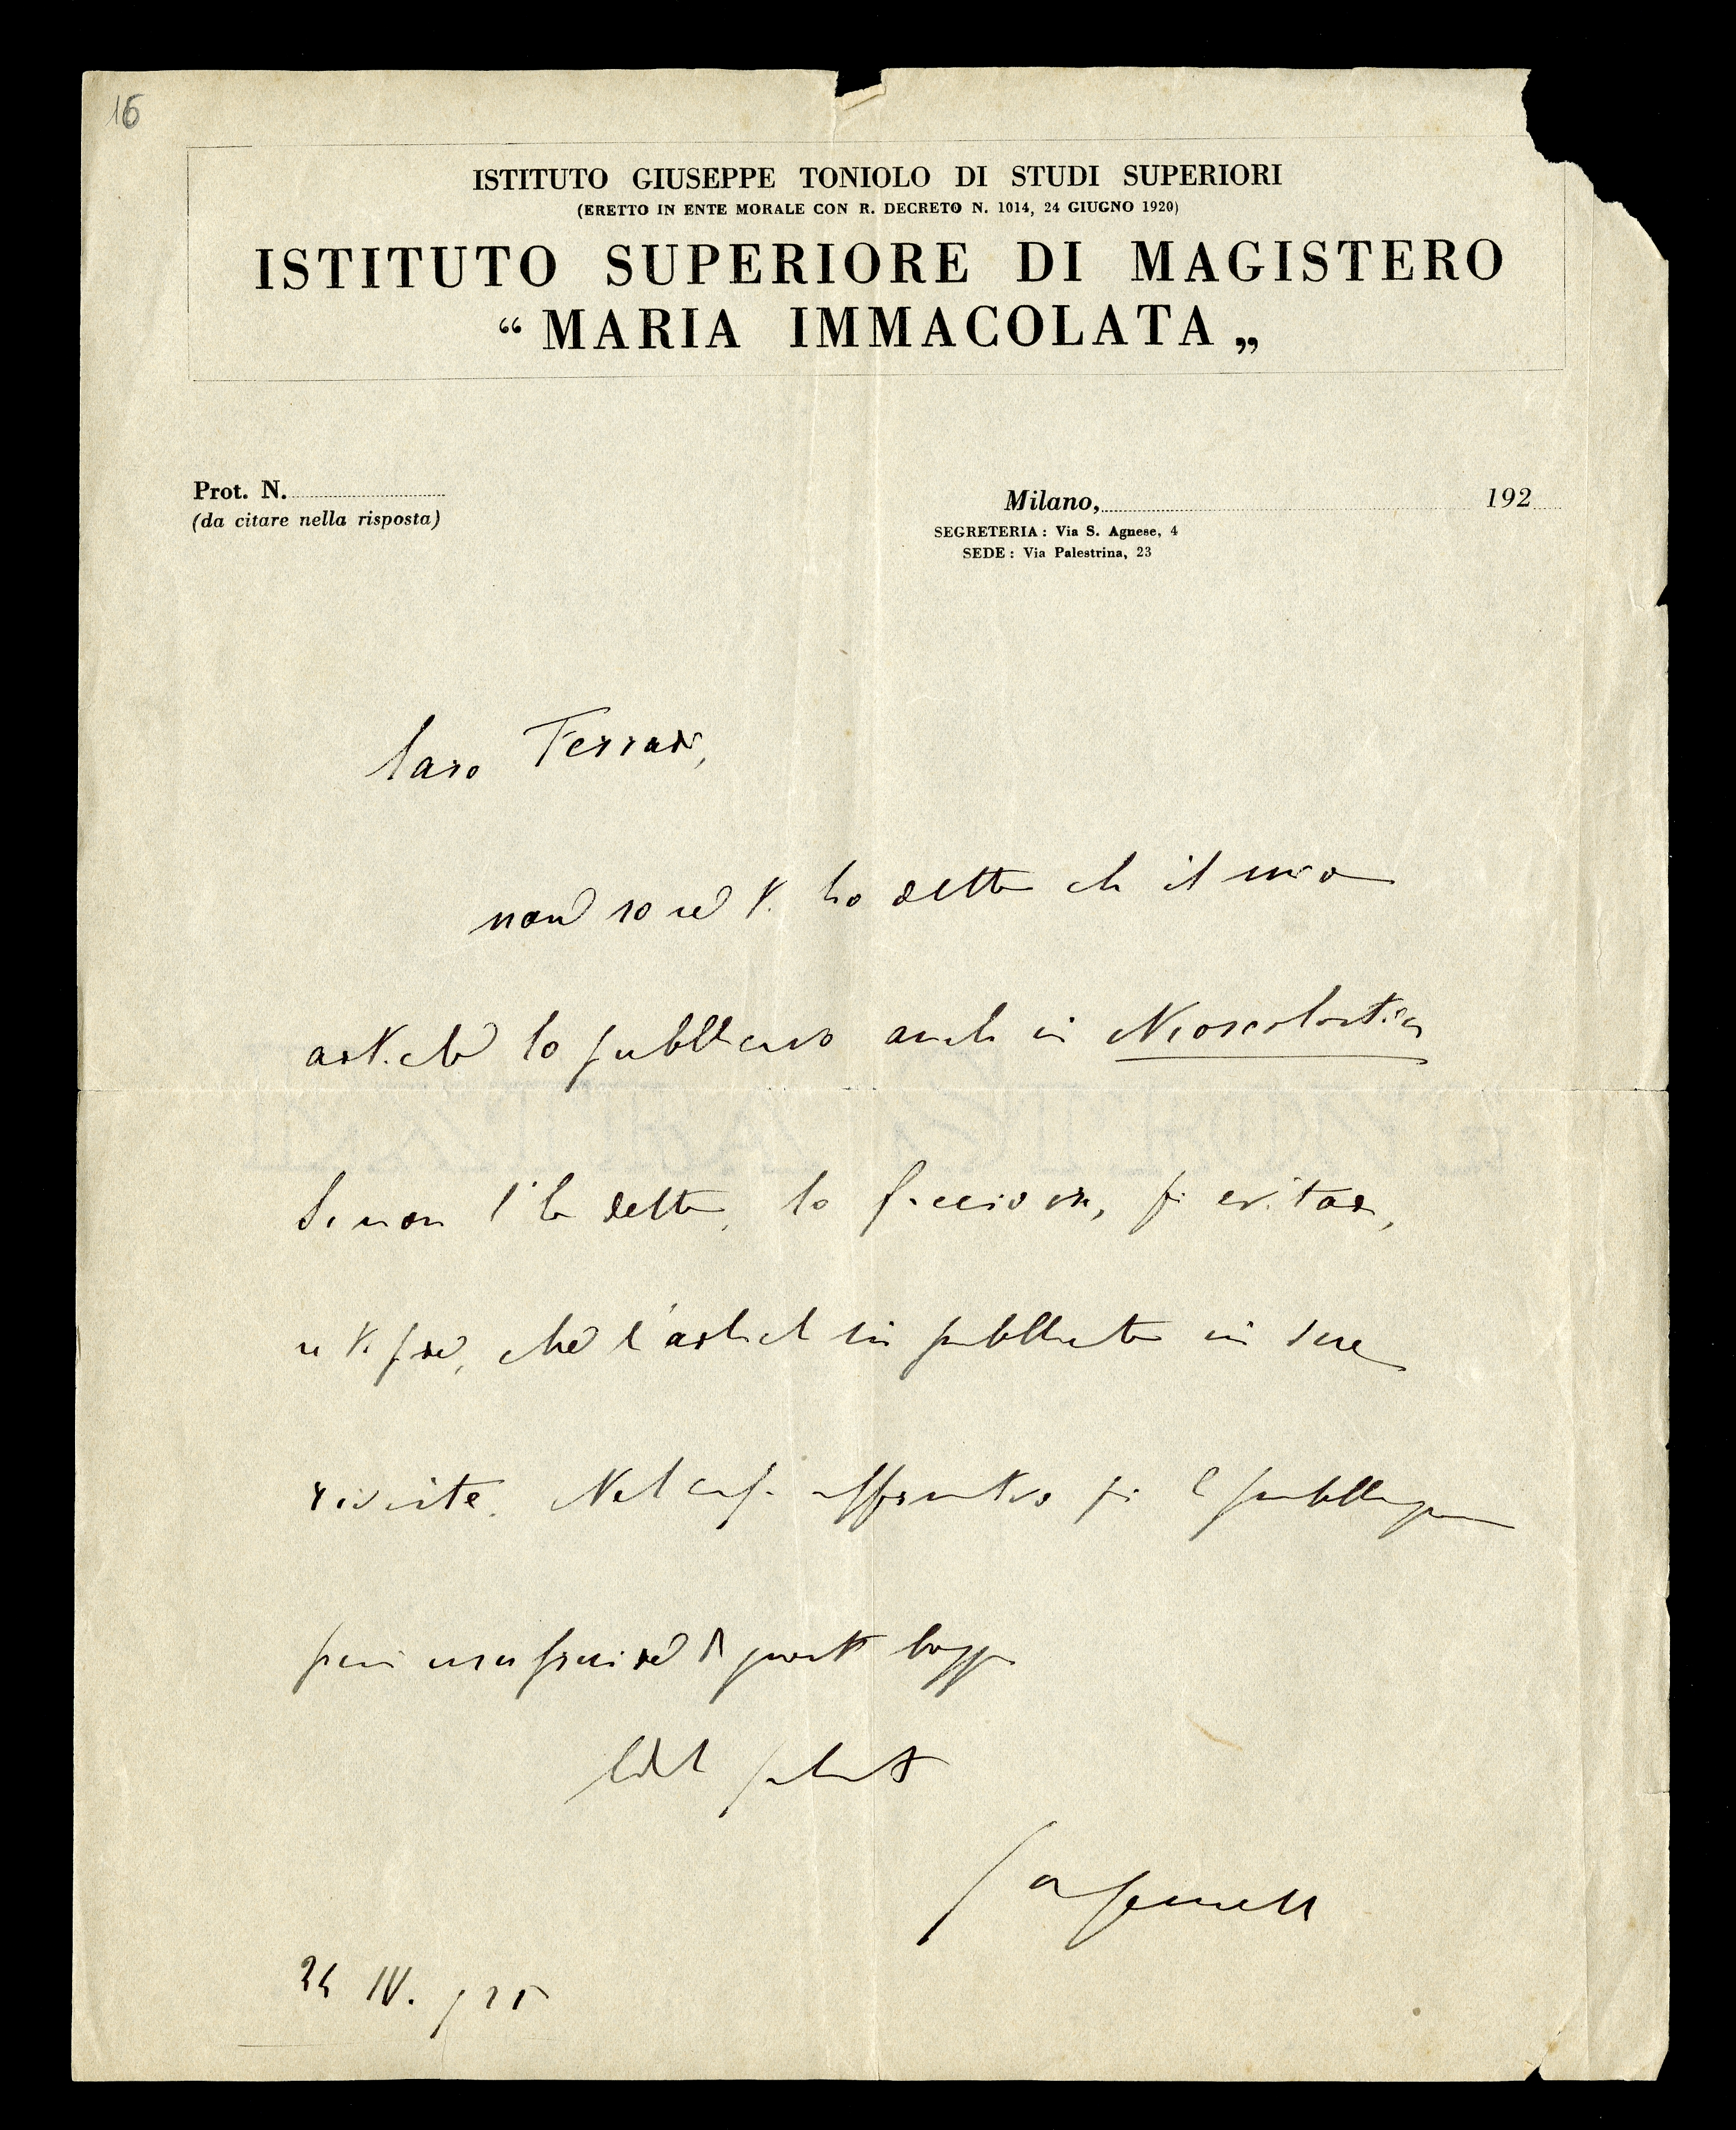 16
ISTITUTO GIUSEPPE TONIOLO DI STUDI SUPERIORI
(ERETTO IN ENTE MORALE CON R. DECRETO N. 1014, 24 GIUGNO 1920)
ISTITUTO SUPERIORE DI MAGISTERO
“MARIA IMMACOLATA„
Prot. N.
(da citare nella risposta)
Milano, 192
SEGRETERIA: Via S. Agnese, 4
SEDE: Via Palestrina, 23
Caro Ferrari,
non so se ti ho detto che il mio
articolo lo pubblicavo anche in Neoscolastica
Se non l'ho detto, lo faccio ora, per evitare,
se ti preme, che l'articolo sia pubblicato in due
riviste. Nel caso affermativo per la pubblicazione
questa bozza
saluti
fa Gemelli
24 IV. 925